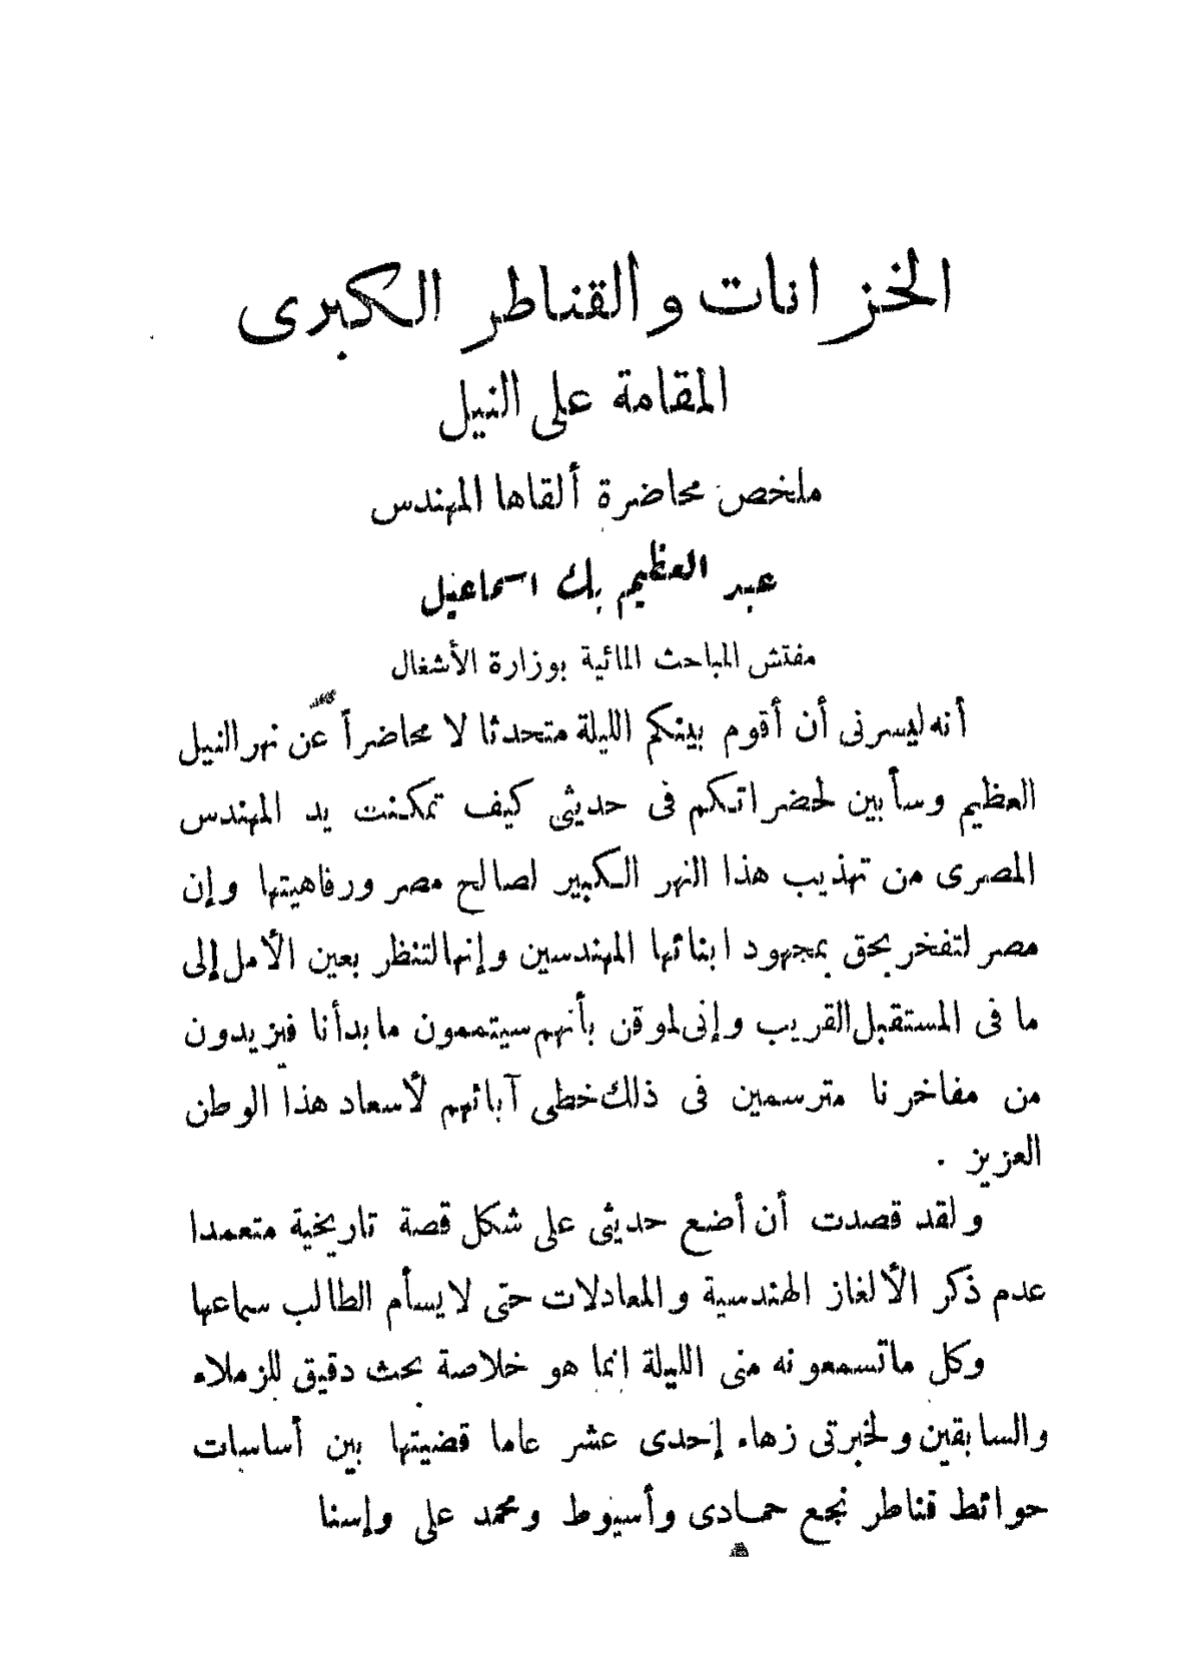 الخزانات والقناطر الكبرى
المقامة على النيل
ملخص محاضرة ألقاها المهندس
عبد العظيم بك اسماعيل
مفتش المباحث المائية بوزارة الأشغال
أنه ليسرنى أن أقوم بينكم الليلة متحدثا لا محاضراً عن نهر النيل
العظيم وسأبين لحضراتكم فى حديثى كيف تمكنت يد المهندس
المصرى من تهذيب هذا النهر الكبير لصالح مصر ورفاهيتها وإن
مصر لتفخر بحق بمجهود ابنائها المهندسين وإنها لتنظر بعين الأمل إلى
ما فى المستقبل القريب وإنى لموقن بأنهم سيتممون ما بدأنا فيزيدون
من مفاخرنا مترسمين فى ذلك خطى آبائهم لأسعاد هذا الوطن
العزيز .
ولقد قصدت أن أضع حديثى على شكل قصة تاريخية متعمدا
عدم ذكر الألغاز الهندسية والمعادلات حتى لا يسأم الطالب سماعها
وكل ما تسمعونه منى الليلة إنما هو خلاصة بحث دقيق للزملاء
والسابقين ولخبرتى زهاء إحدى عشر عاما قضيتها بين أساسات
حوائط قناطر نجع حمادى وأسيوط ومحمد على وإسنا